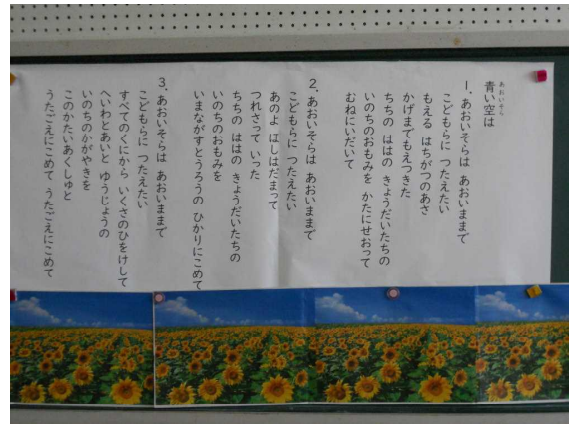 あおいそら
青い空は
1. あおいそらは あおいままで
こどもらに つたえたい
もえる はちがつのあさ
かげまでもえつきた
ちちの ははの きょうだいたちの
いのちのおもみを かたにせおって
むねにいだいて
2. あおいそらは あおいままで
こどもらに つたえたい
あのよ ほしはだまって
つれさって いった
ちちの ははの きょうだいたちの
いのちのおもみを
いまながすとうろうの ひかりにこめて
3. あおいそらは あおいままで
こどもらに つたえたい
すべてのくにから いくさのひをけして
へいわとあいと ゆうじょうの
いのちのかがやきを
このかたいあくしゅと
うたごえにこめて うたごえにこめて